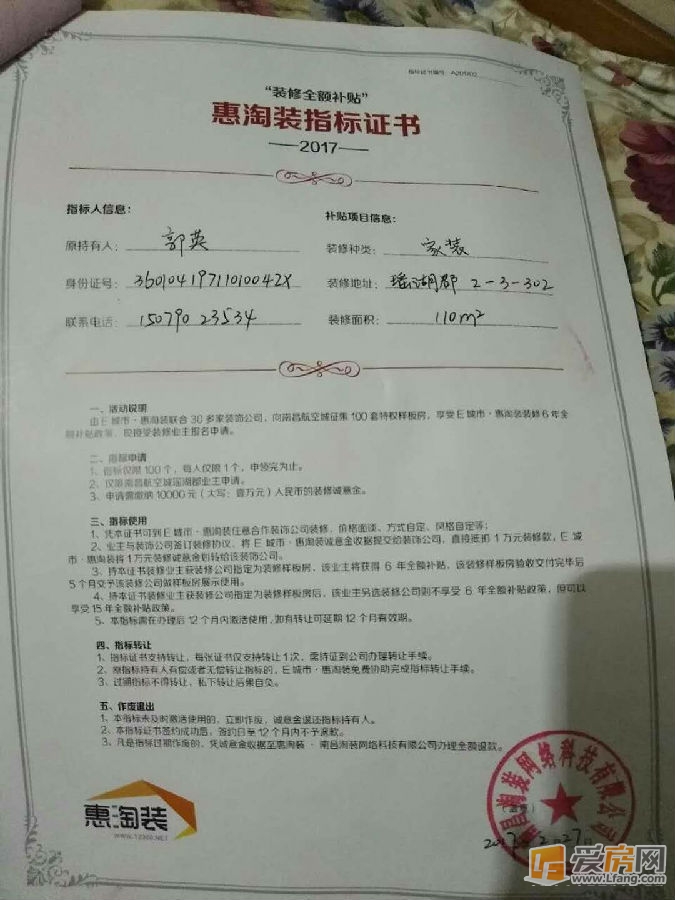 指标证书编号：A201702
“装修全额补贴”
惠淘装指标证书
2017
指标人信息：
原持有人：郭英
身份证号：36010419711010042X
联系电话：15079023534
补贴项目信息：
装修种类：家装
装修地址：瑶湖郡 2-3-302
装修面积：110m²
一、活动说明
由E城市·惠淘装联合30多家装饰公司，向南昌航空城征集100套特权样板房，享受E城市·惠淘装装修6年全
额补贴政策，现接受装修业主报名申请。
二、指标申请
1、指标仅限100个，每人仅限1个，申领完为止。
2、仅限南昌航空城瑶湖郡业主申请。
3、申请需缴纳10000元（大写：壹万元）人民币的装修诚意金。
三、指标使用
1、凭本证书可到E城市·惠淘装任意合作装饰公司装修，价格面谈、方式自定、风格自定等；
2、业主与装饰公司签订装修协议，将E城市·惠淘装诚意金收据提交给装饰公司，直接抵扣1万元装修款，E城
市·惠淘装将1万元装修诚意金划转给该装饰公司。
3、持本证书装修业主获装修公司指定为装修样板房，该业主将获得6年全额补贴，该装修样板房验收交付完毕后
5个月交予该装修公司做样板房展示使用。
4、持本证书装修业主获装修公司指定为装修样板房后，该业主另选装修公司则不享受6年全额补贴政策，但可以
享受15年全额补贴政策。
5、本指标需在办理后12个月内激活使用，如有转让可延期12个月有效期。
四、指标转让
1、指标证书支持转让，每张证书仅支持转让1次，需持证到公司办理转让手续。
2、原指标持有人有偿或者无偿转让指标的，E城市·惠淘装免费协助完成指标转让手续。
3、过期指标不得转让，私下转让后果自负。
五、作废退出
1、本指标未及时激活使用的，立即作废，诚意金退还指标持有人。
2、本指标证书签约成功后，签约日至12个月内不予退款。
3、凡是指标过期作废的，凭诚意金收据至惠淘装·南昌淘装网络科技有限公司办理全额退款。
惠淘装
WWW.12360.NET
南昌淘装网络科技有限公司
2017 2 27
爱房网
www.Lfang.com